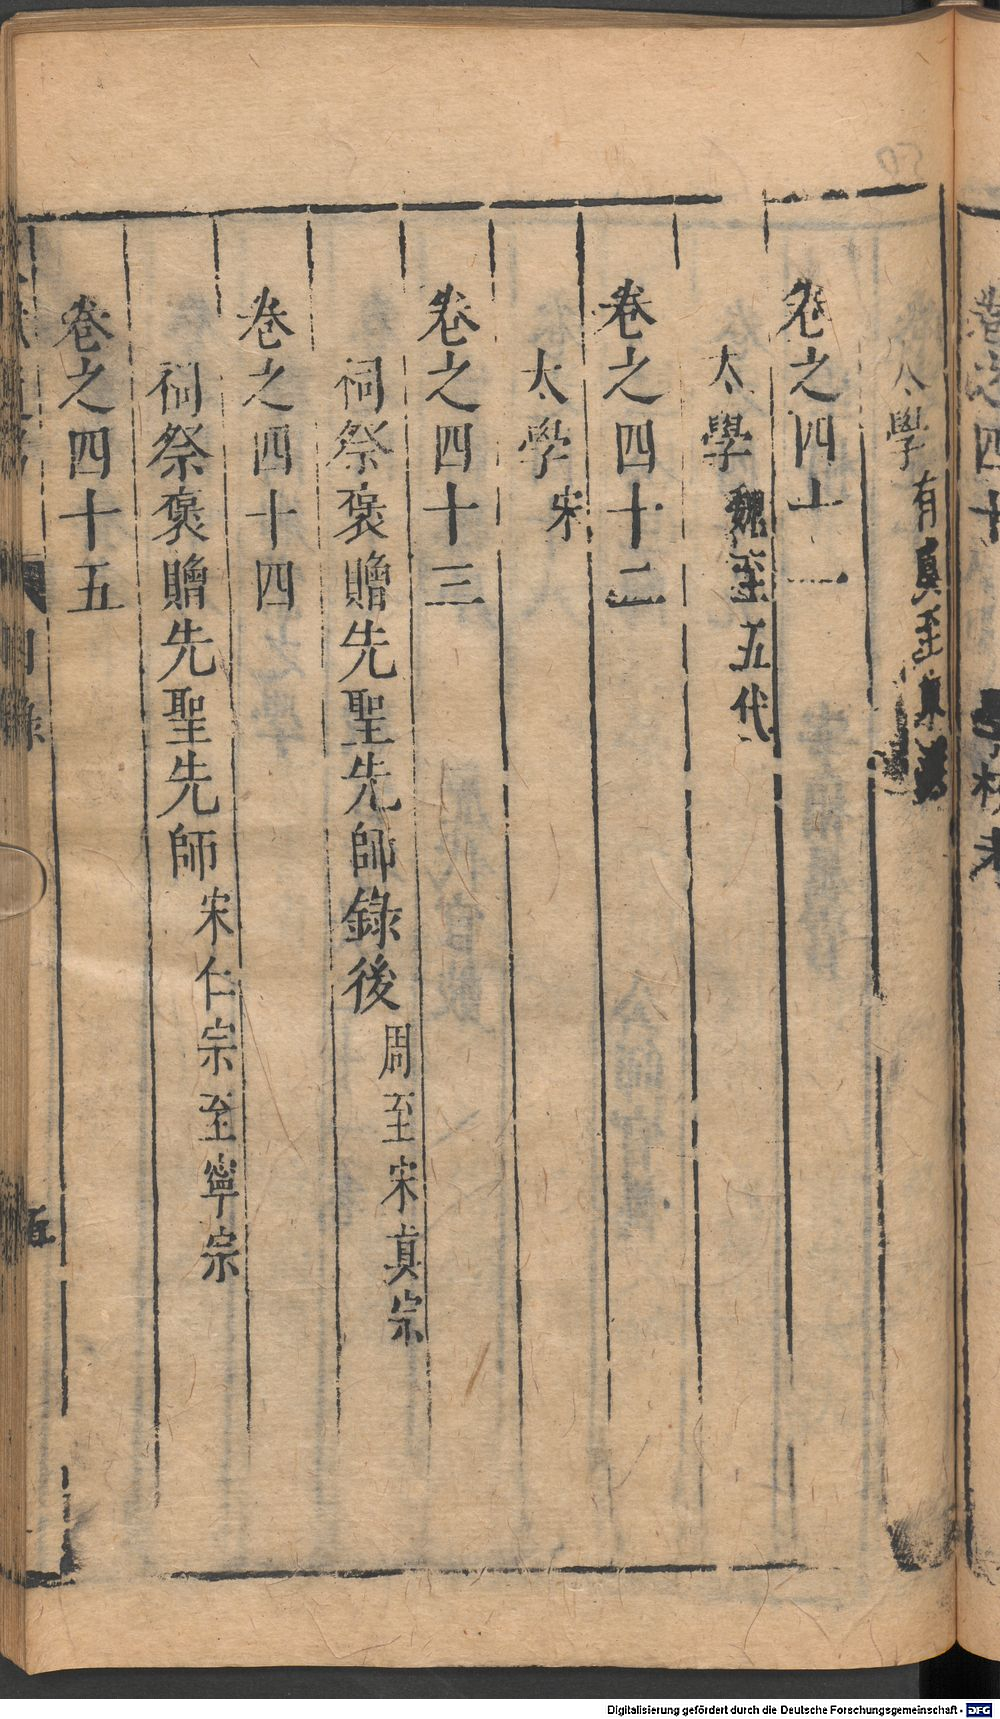 太學有虞至東漢
卷之四十一
太學魏至五代
卷之四十二
太學宋
卷之四十三
祠祭褒贈先聖先師錄後周至宋真宗
卷之四十四
祠祭褒贈先聖先師宋仁宗至寧宗
卷之四十五
目錄
Digitalisierung gefördert durch die Deutsche Forschungsgemeinschaft - DFG